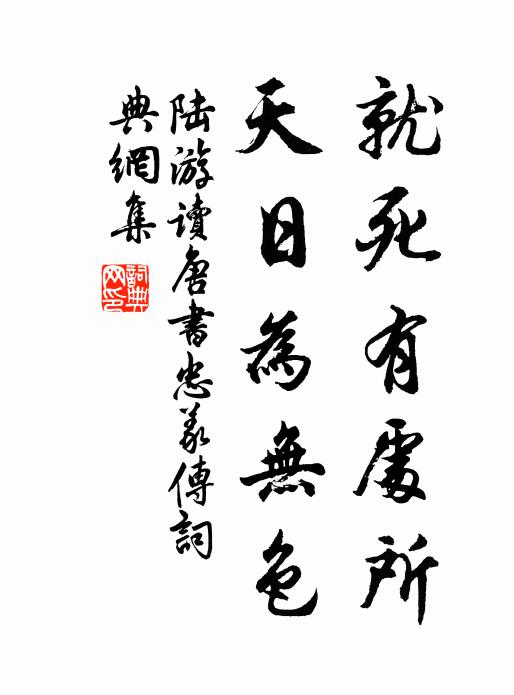 就死有處所
天日為無色
陸游讀唐書忠義傳詞
典網集
詞典
网印